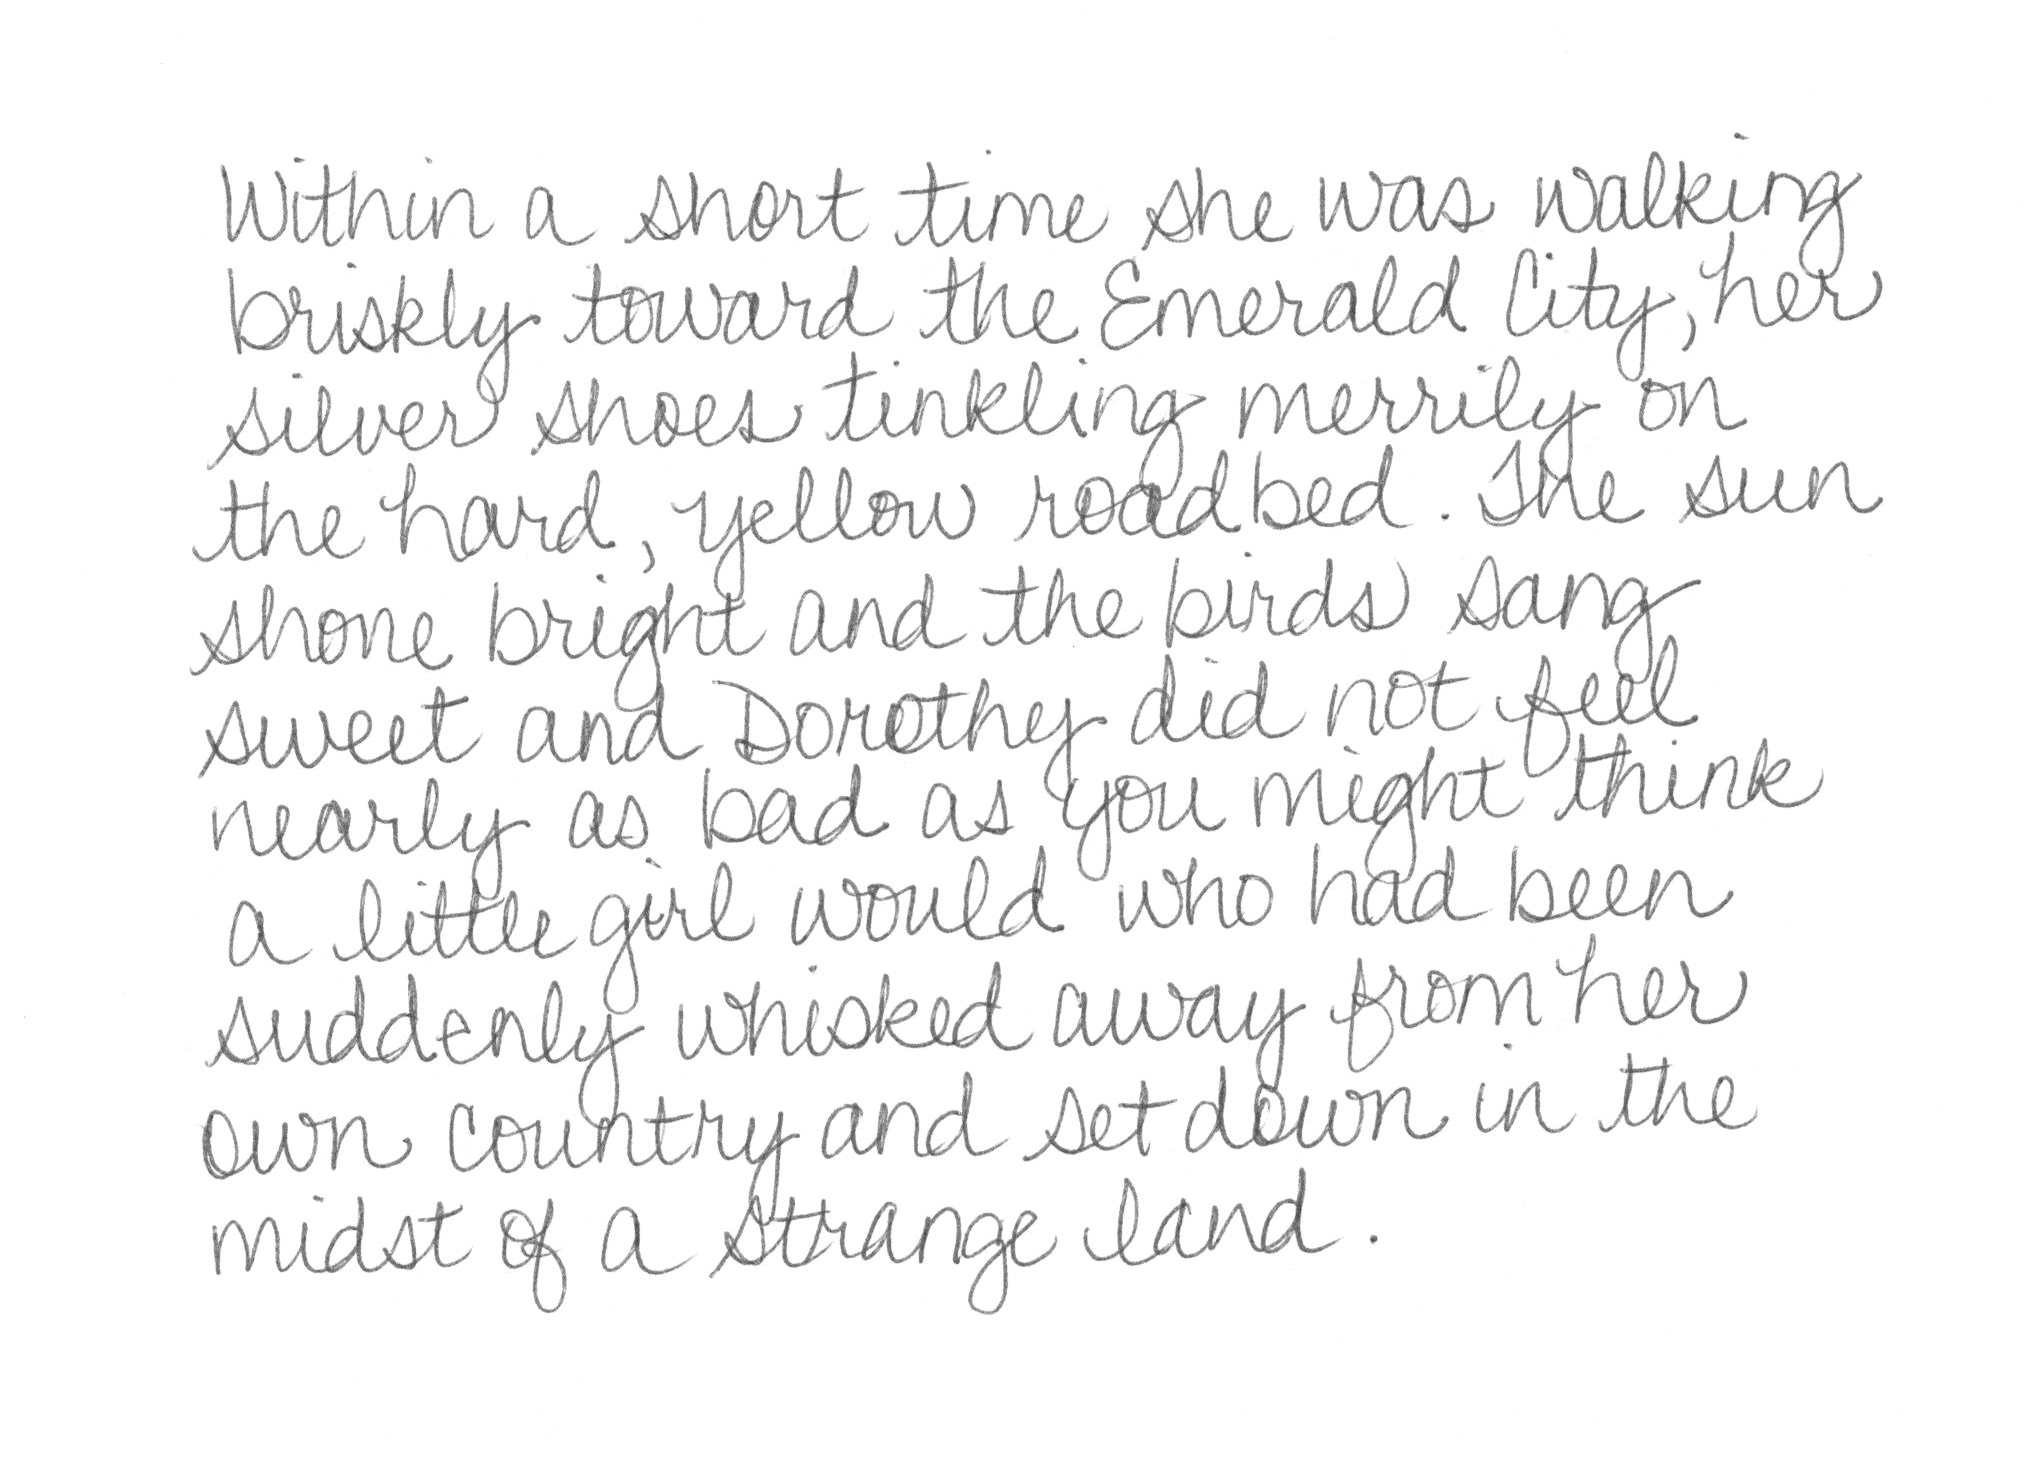 Within a short time she was walking
briskly toward the Emerald City, her
silver shoes tinkling merrily on
the hard, yellow roadbed. The sun
shone bright and the birds sang
sweet and Dorothy did not feel
nearly as bad as you might think
a little girl would who had been
suddenly whisked away from her
own country and set down in the
midst of a strange land.